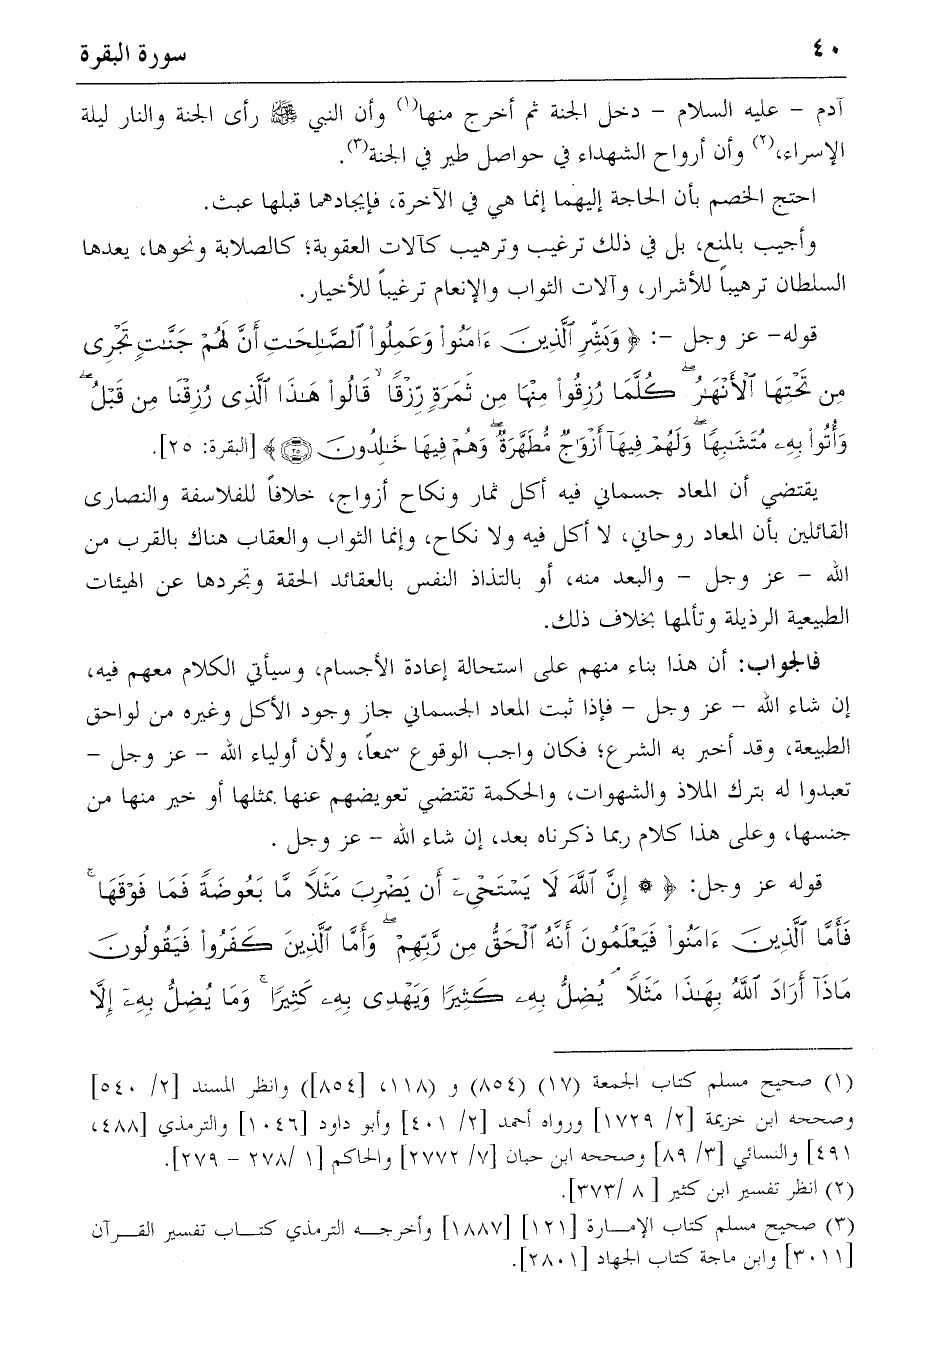 ٤٠ سورة البقرة
آدم – عليه السلام – دخل الجنة ثم أخرج منها(١) وأن النبي ﷺ رأى الجنة والنار ليلة
الإسراء،(٢) وأن أرواح الشهداء في حواصل طير في الجنة(٣).
احتج الخصم بأن الحاجة إليهما إنما هي في الآخرة، فإيجادهما قبلها عبث.
وأجيب بالمنع، بل في ذلك ترغيب وترهيب كآلات العقوبة؛ كالصلابة ونحوها، يعدها
السلطان ترهيباً للأشرار، وآلات الثواب والإنعام ترغيباً للأخيار.
قوله– عز وجل –: ﴿ وَبَشِّرِ ٱلَّذِينَ ءَامَنُوا۟ وَعَمِلُوا۟ ٱلصَّـٰلِحَـٰتِ أَنَّ لَهُمْ جَنَّـٰتٍ تَجْرِى
مِن تَحْتِهَا ٱلْأَنْهَـٰرُ ۖ كُلَّمَا رُزِقُوا۟ مِنْهَا مِن ثَمَرَةٍ رِّزْقًا ۙ قَالُوا۟ هَـٰذَا ٱلَّذِى رُزِقْنَا مِن قَبْلُ ۖ
وَأُتُوا۟ بِهِۦ مُتَشَـٰبِهًا ۖ وَلَهُمْ فِيهَآ أَزْوَٰجٌ مُّطَهَّرَةٌ ۖ وَهُمْ فِيهَا خَـٰلِدُونَ ۝٢٥ ﴾ [البقرة: ٢٥].
يقتضي أن المعاد جسماني فيه أكل ثمار ونكاح أزواج، خلافاً للفلاسفة والنصارى
القائلين بأن المعاد روحاني، لا أكل فيه ولا نكاح، وإنما الثواب والعقاب هناك بالقرب من
الله – عز وجل – والبعد منه، أو بالتذاذ النفس بالعقائد الحقة وتجردها عن الهيئات
الطبيعية الرذيلة وتألمها بخلاف ذلك.
فالجواب: أن هذا بناء منهم على استحالة إعادة الأجسام، وسيأتي الكلام معهم فيه،
إن شاء الله – عز وجل – فإذا ثبت المعاد الجسماني جاز وجود الأكل وغيره من لواحق
الطبيعة، وقد أخبر به الشرع؛ فكان واجب الوقوع سمعاً، ولأن أولياء الله – عز وجل –
تعبدوا له بترك الملاذ والشهوات، والحكمة تقتضي تعويضهم عنها بمثلها أو خير منها من
جنسها، وعلى هذا كلام ربما ذكرناه بعد، إن شاء الله – عز وجل .
قوله عز وجل: ﴿ ۞ إِنَّ ٱللَّهَ لَا يَسْتَحْىِۦٓ أَن يَضْرِبَ مَثَلًا مَّا بَعُوضَةً فَمَا فَوْقَهَا ۚ
فَأَمَّا ٱلَّذِينَ ءَامَنُوا۟ فَيَعْلَمُونَ أَنَّهُ ٱلْحَقُّ مِن رَّبِّهِمْ ۖ وَأَمَّا ٱلَّذِينَ كَفَرُوا۟ فَيَقُولُونَ
مَاذَآ أَرَادَ ٱللَّهُ بِهَـٰذَا مَثَلًا ۘ يُضِلُّ بِهِۦ كَثِيرًا وَيَهْدِى بِهِۦ كَثِيرًا ۚ وَمَا يُضِلُّ بِهِۦٓ إِلَّا
(١) صحيح مسلم كتاب الجمعة (١٧) (٨٥٤) و (١١٨، [٨٥٤]) وانظر المسند [٢/ ٥٤٠]
وصححه ابن خزيمة [٢/ ١٧٢٩] ورواه أحمد [٢/ ٤٠١] وأبو داود [١٠٤٦] والترمذي [٤٨٨،
٤٩١] والنسائي [٣/ ٨٩] وصححه ابن حبان [٧/ ٢٧٧٢] والحاكم [١ /٢٧٨ – ٢٧٩].
(٢) انظر تفسير ابن كثير [ ٨ /٣٧٣].
(٣) صحيح مسلم كتاب الإمـــارة [١٢١] [١٨٨٧] وأخرجـــه الترمذي كتـــاب تفسير القـــرآن
[٣٠١١] وابن ماجة كتاب الجهاد [٢٨٠١].